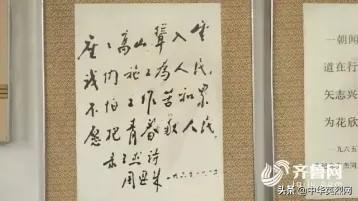 座座高山耸入云
我们施工为人民
不怕工作苦和累
愿把青春献人民
录王杰诗
周恩来
一朝闻
道在行
矢志兴
为花欣
一九六五
齐鲁网
头条 @中华英烈网